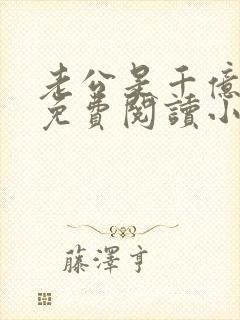 老公是千億
免費閱讀小
藤澤亨